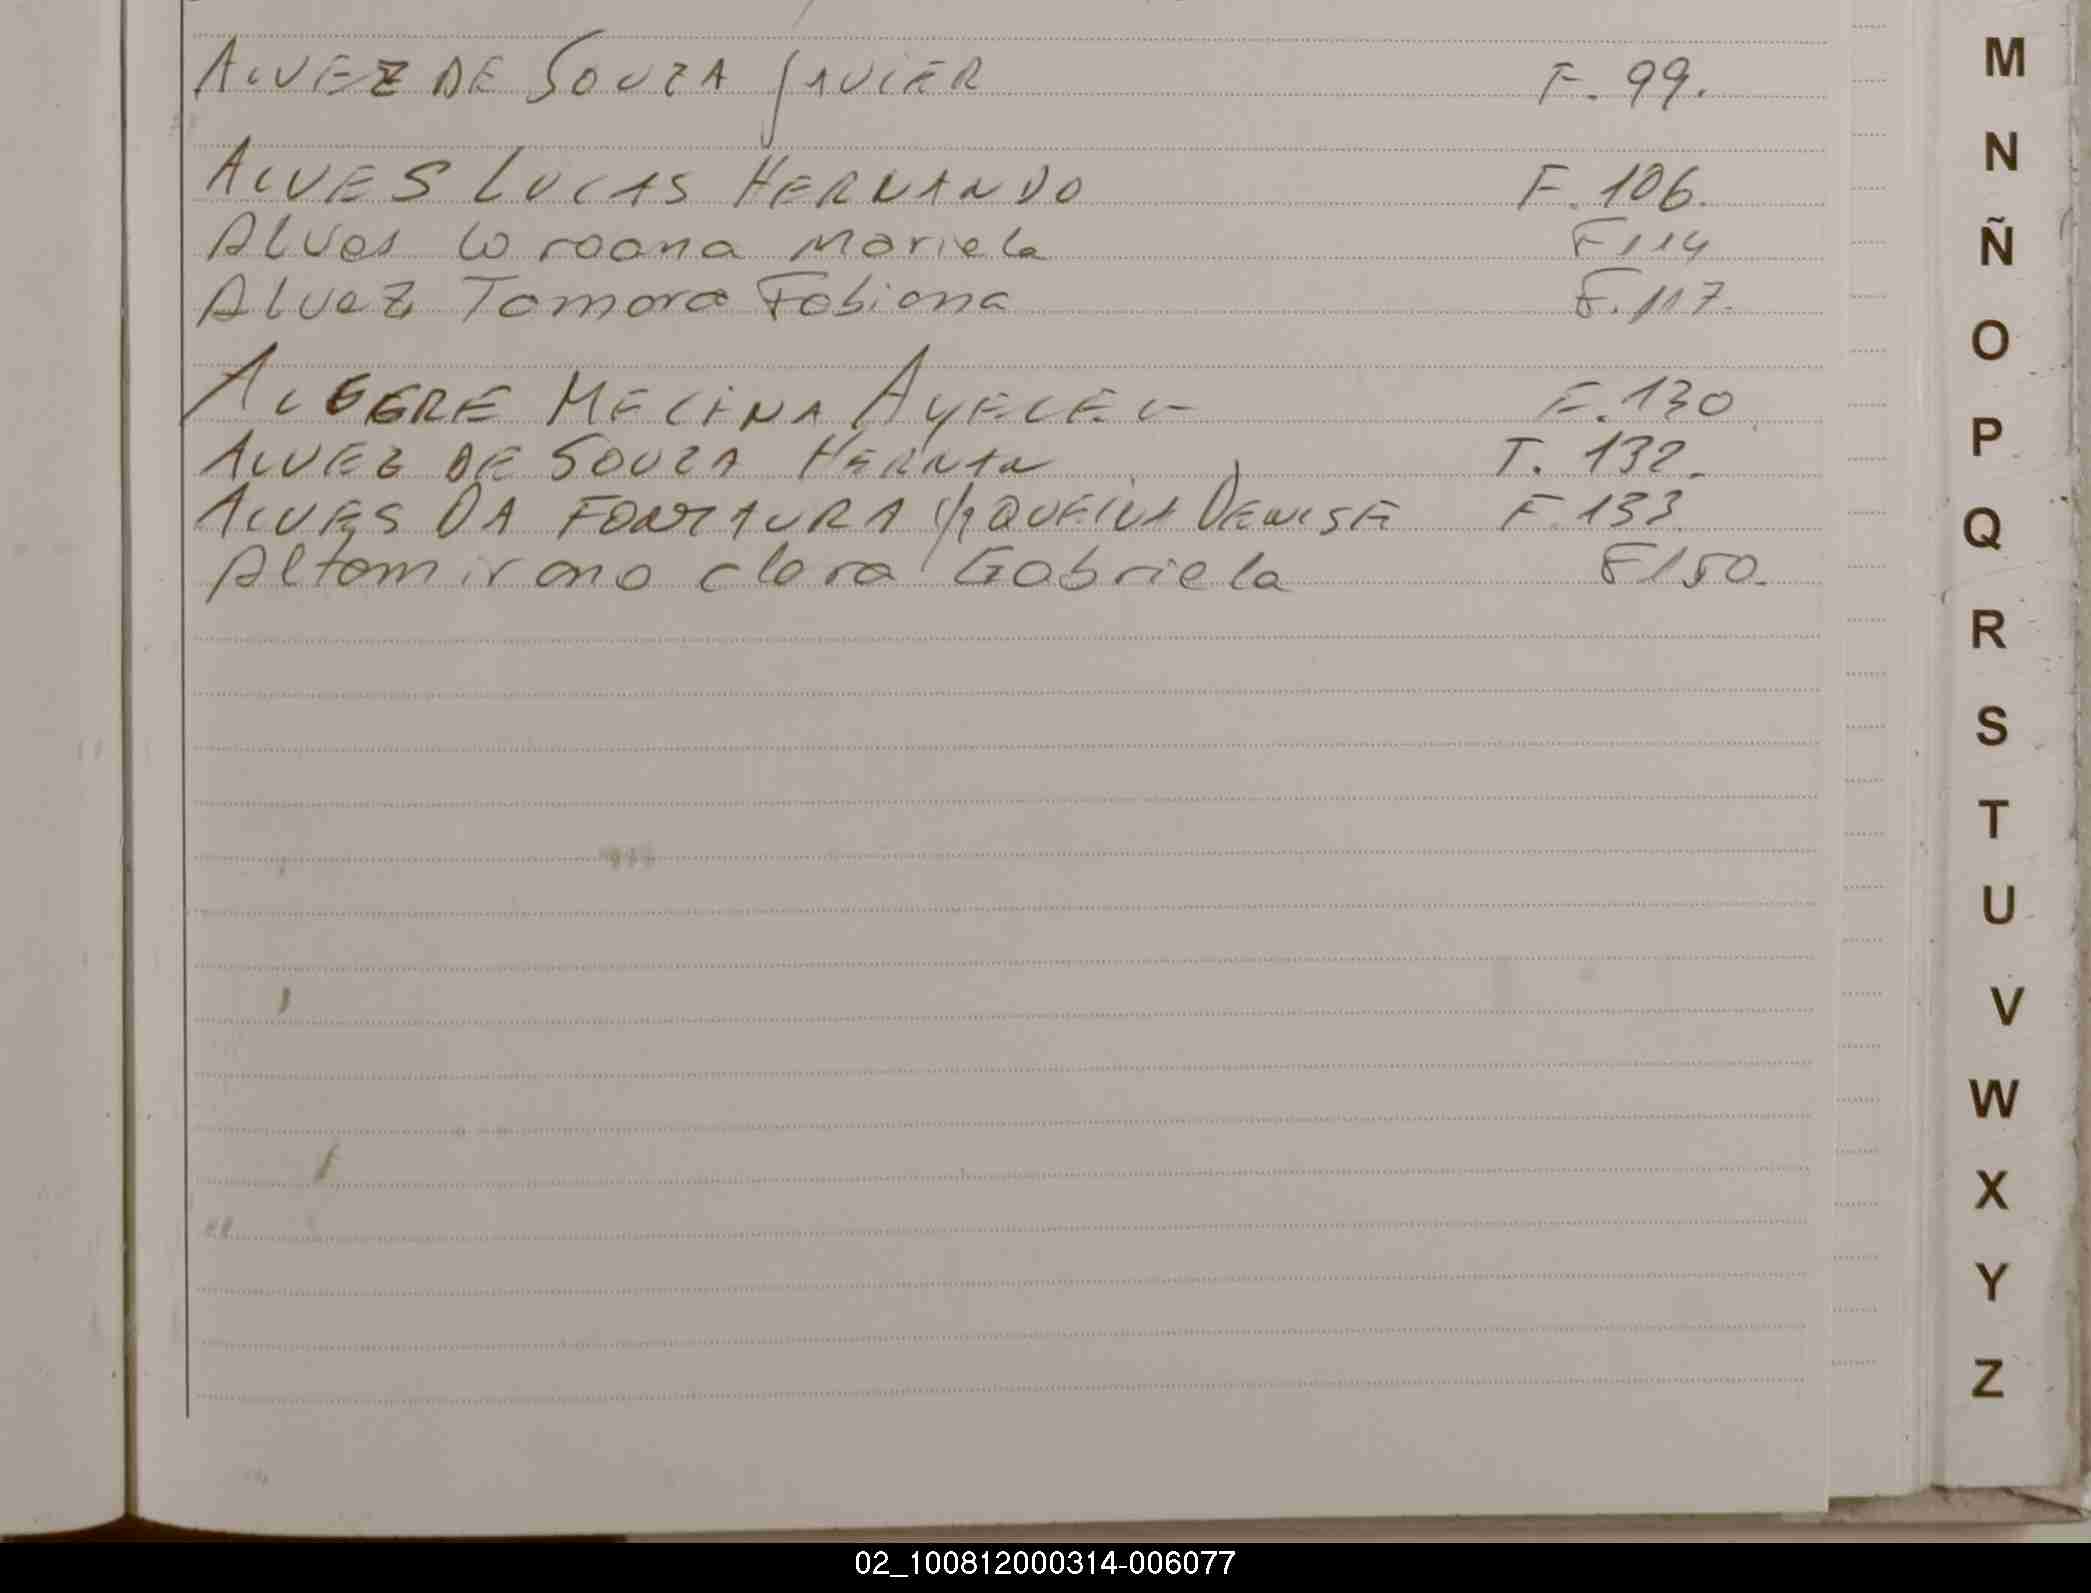 ALVEZ DE SOUZA JAVIER F. 99.
ALVES LUCAS HERNANDO F. 106.
Alves Mariela F 114
Alvez Tamara Fabiana F. 117.
ALEGRE MELINA AYELEN F. 130
ALVEZ DE SOUZA HERNAN T. 132.
ALVES DA FONTAURA JAQUELINA DENISE F. 133.
Altamirano clara Gabriela F 150.
M
N
Ñ
O
P
Q
R
S
T
U
V
W
X
Y
Z
02_100812000314-006077